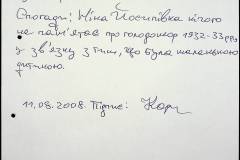 Спогади: Ніна Йосипівна нічого
не пам'ятає про голодомор 1932-33рр
у зв'язку з тим, що була маленькою
дитиною.
11.08.2008. Підпис: